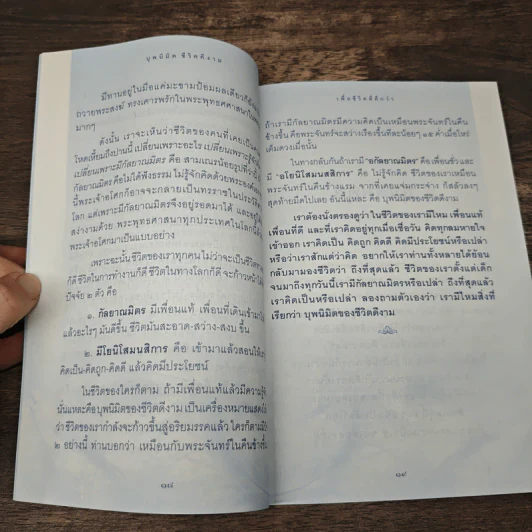 บุพนิมิต ชีวิตดีงาม
มีทานอยู่ในมือแค่มะขามป้อมผลเดียวก็ยัง
ถวายพระสงฆ์ ทรงเคารพรักในพระพุทธศาสนา
มากๆ
ดังนั้น เราจะเห็นว่าชีวิตของคนที่เคยเป็นคน
โหดเหี้ยมถึงปานนี้ เปลี่ยนเพราะอะไร เปลี่ยนเพราะรู้จัก
เปลี่ยนเพราะมีกัลยาณมิตร คือ สามเณรน้อยรูปหนึ่ง
กัลยาณมิตรคือไม่ได้ฟังธรรม ไม่รู้จักคิดด้วยพระองค์
นี้พระเจ้าอโศกก็อาจจะกลายเป็นทรราชในประวัติ
โลก แต่เพราะมีกัลยาณมิตรจึงอยู่รอดมาได้ และรุ่ง
สง่างามด้วย พระพุทธศาสนาทุกประเทศในโลกนี้
พระเจ้าอโศกมาเป็นแบบอย่าง
เพราะฉะนั้น ชีวิตของเราทุกคนไม่ว่าจะเป็นชีวิต
ก็ดี ชีวิตในการทำงานก็ดี ชีวิตในทางโลกก็ดี จะก้าวหน้าได้
ปัจจัย ๒ ตัว คือ
๑. กัลยาณมิตร มีเพื่อนแท้ เพื่อนที่เดินเข้ามา
แล้วอะไรๆ มันดีขึ้น ชีวิตมันสะอาด-สว่าง-สงบ ขึ้น
๒. มีโยนิโสมนสิการ คือ เข้ามาแล้วสอนให้เรา
คิดเป็น-คิดถูก-คิดดี แล้วคิดมีประโยชน์
ในชีวิตของใครก็ตาม ถ้ามีเพื่อนแท้แล้วมีความรู้
นั่นแหละคือบุพนิมิตของชีวิตดีงาม เป็นเครื่องหมายแสดง
ว่า ชีวิตของเรากำลังจะก้าวขึ้นสู่อริยมรรคแล้ว ใครก็ตามมี
๒ อย่างนี้ ท่านบอกว่า เหมือนกับพระจันทร์ในคืนข้างขึ้น
๑๘
เพื่อชีวิตที่ดีกว่า
ถ้าเรามีกัลยาณมิตรมีความคิดเป็นเหมือนพระจันทร์ในคืน
ข้างขึ้น คือพระจันทร์จะสว่างเรืองขึ้นทีละน้อยๆ ๑๕ ค่ำเมื่อไหร่
เต็มดวงเมื่อนั้น
ในทางกลับกันถ้าเรามี "อกัลยาณมิตร" คือ เพื่อนชั่วและ
มี "อโยนิโสมนสิการ" คือ ไม่รู้จักคิด ชีวิตของเราเหมือน
พระจันทร์ในคืนข้างแรม จากที่เคยแจ่มกระจ่าง ก็สลัวลงๆ
สุดท้ายมืดไปเลย อันนี้แหละ คือ บุพนิมิตของชีวิต
เราต้องนั่งตรองดูว่า ในชีวิตของเรามีไหม เพื่อนแท้
เพื่อนที่ดี และที่เราคิดอยู่ทุกเมื่อเชื่อวัน คิดทุกลมหายใจ
เข้าออก เราคิดเป็น คิดถูก คิดดี คิดมีประโยชน์หรือเปล่า
หรือว่าเราสักแต่ว่าคิด อยากให้เราท่านทั้งหลายได้ย้อน
กลับมามองชีวิตว่า ถึงที่สุดแล้ว ชีวิตของเราตั้งแต่เด็ก
จนมาถึงทุกวันนี้เรามีกัลยาณมิตรหรือเปล่า ถึงที่สุดแล้ว
เราคิดเป็นหรือเปล่า ลองถามตัวเองว่า เรามีไหมสิ่งที่
เรียกว่า บุพนิมิตของชีวิตดีงาม
๑๙